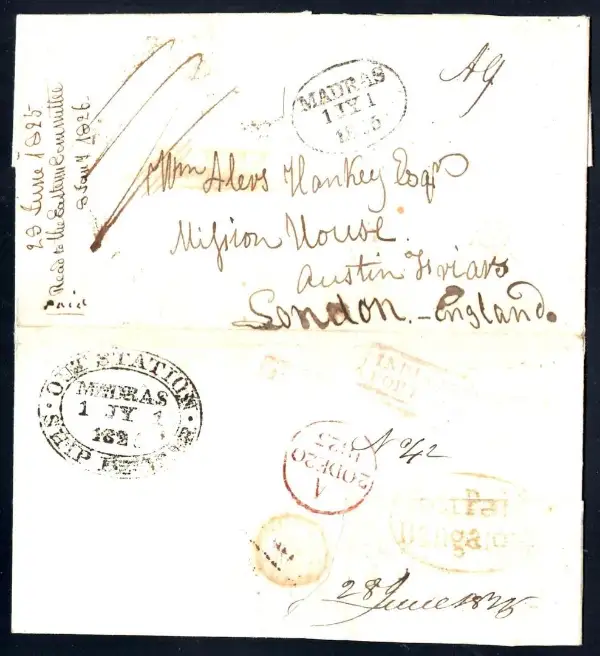 23 June 1825
Read to the Eastern Committee
3 Jany 1826.
paid
MADRAS
1 JY 1
1825
Wm Alers Hankey Esqr
Mission House.
Austin Friars
London. - England.
OUT STATION
SHIP
MADRAS
1 JY 1
182
INDIA
A
20 DE 20
1825
No 42
Bangalore
28 June 1825.